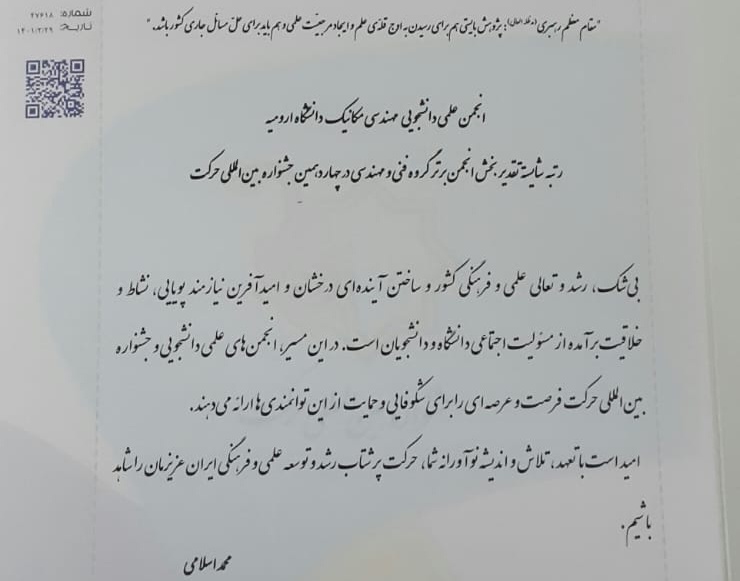 شماره: ۲۷۶۱۸
تاریخ: ۱۴۰۱/۲/۲۹
"مقام معظم رهبری (مدظله العالی): پژوهش بایستی هم برای رسیدن به اوج قله‌ی علم و ایجاد مرجعیّت علمی و هم باید برای حلّ مسائل جاری کشور باشد."
انجمن علمی دانشجویی مهندسی مکانیک دانشگاه ارومیه
رتبه شایسته تقدیر بخش انجمن برتر گروه فنی و مهندسی در چهاردهمین جشنواره بین‌المللی حرکت
بی‌شک، رشد و تعالی علمی و فرهنگی کشور و ساختن آینده‌ای درخشان و امیدآفرین نیازمند پویایی، نشاط و
خلاقیت برآمده از مسئولیت اجتماعی دانشگاه و دانشجویان است. در این مسیر، انجمن‌های علمی دانشجویی و جشنواره
بین‌المللی حرکت فرصت و عرصه‌ای را برای شکوفایی و حمایت از این توانمندی‌ها ارائه می‌دهند.
امید است با تعهد، تلاش و اندیشه نوآورانه شما، حرکت پرشتاب رشد و توسعه علمی و فرهنگی ایران عزیزمان را شاهد
باشیم.
محمد اسلامی